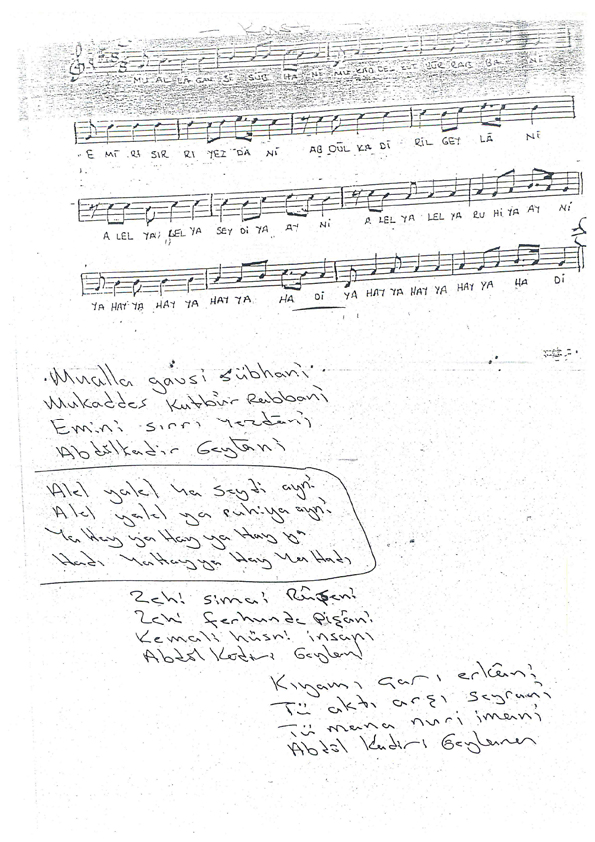 MU AL LÂ GAV Sİ SÜB HA Nİ MU KAD DES KUT BÜR RAB BA Nİ
E Mİ Rİ SIR RI YEZ DÂ Nİ AB DÜL KA Dİ RİL GEY LÂ Nİ
A LEL YA LEL YA SEY Dİ YA AY Nİ A LEL YA LEL YA RU Hİ YA AY Nİ
YA HAY YA HAY YA HAY YA HA Dİ YA HAY YA HAY YA HAY YA HA Dİ
Mualla gavsi sübhani
Mukaddes Kutbür Rabbani
Emini sırrı yezdâni
Abdülkadir Geylâni
Alel yalel ya Seydi ayni
Alel yalel ya ruhiya ayni
Ya Hay ya Hay ya Hay ya
Hadi Ya Hay ya Hay Ya Hadi
Zehi simai Rûşeni
Zehi ferhunde pişâni
Kemali hüsni insani
Abdül Kadiri Geylani
Kıyamı çarı erkâni
Tü aktı arşı Seyrani
Tü mana nuri imani
Abdül Kadiri Geylanen